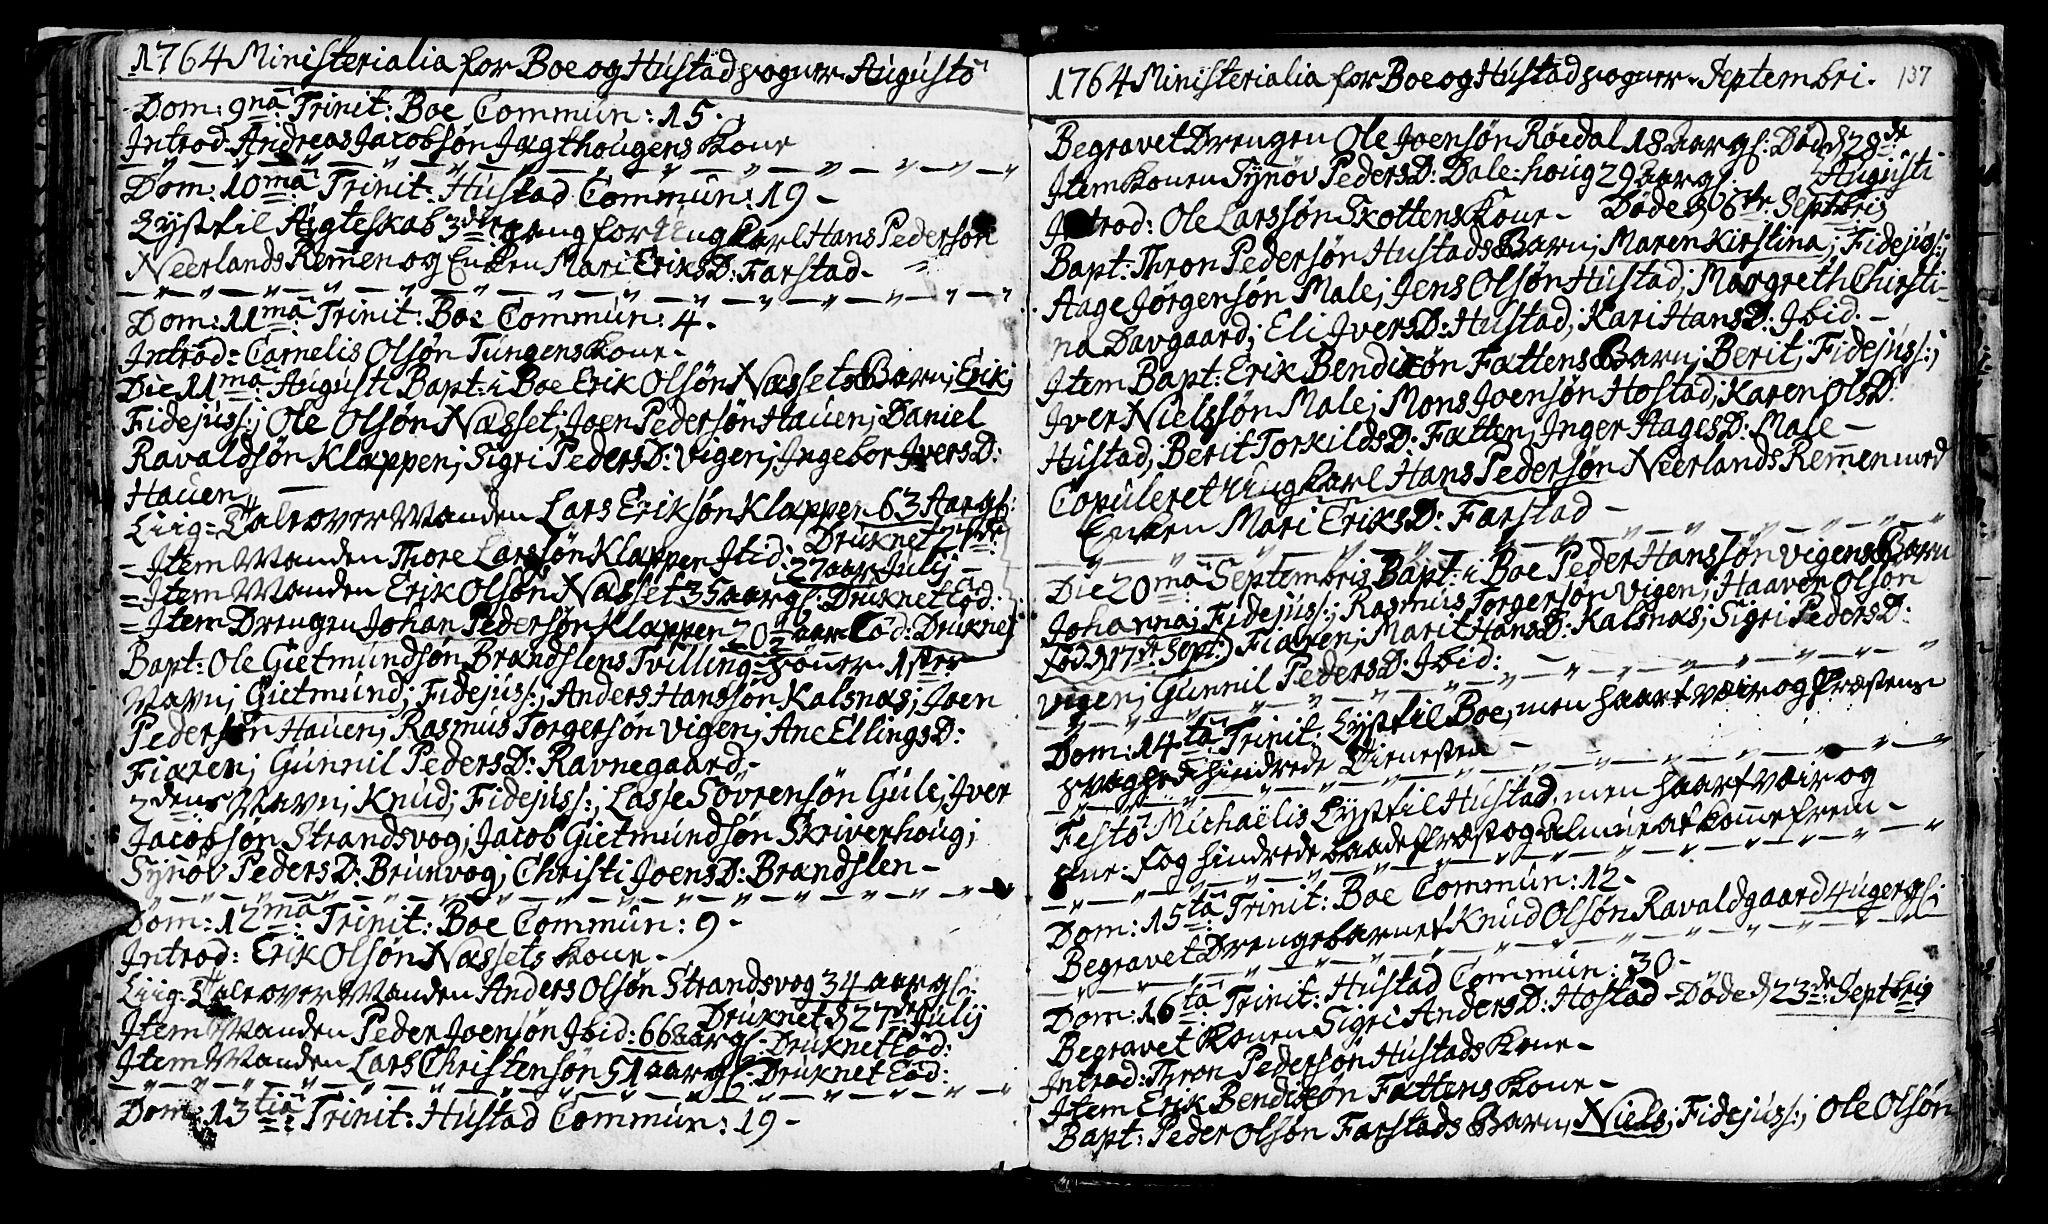 1764 Ministerialia for Boe og Hústad sogner. Augústo
Dom: 9nã Trinit: Boe Commún: 15.
Introd. Andreas Jacobsøn Jagthougens kone
Dom: 10mã Trinit: Hústad Commún: 19 -
Lyst til Ægteskab 3die gang for ung karl Hans Pedersøn
Neerlands Rem̅en og Enken Mari EriksD: Farstad -
Dom: 11mã Trinit: Boe Commún: 4 -
Introd: Cornelis Olsøn Túngens kone -
Die 11mã Augústi Bapt: i Boe Erik Olsøn Næssets Barn; Erik;
Fidejúss:; Ole Olsøn Næsset; Joen Pedersøn Hauen; Daniel
Ravaldsøn Klappen; Sigri PedersD: Vigen; Ingebor IversD:
Hauen -
Liig-Tale over Manden Lars Eriksøn Klappen 63 Aar gl:
Drúknet 27de
- Item Manden Thore Larssøn Klappen Ibid: 27 aar Júlij -
- Item Manden Erik Olsøn Næsset 35 aar gl: Drúknet Eod:
- Item Drengen Johan Pedersøn Klappen 20½ aar Eod: Drúknet
Bapt: Ole Gietmúndsøn Brandslens Tvilling-sønner. 1ster
Navn; Gietmúnd; Fidejúss:; Anders Hanssøn Kalsnæs; Joen
Pedersøn Hauen; Rasmús Torgersøn Vigen; Ane EllingsD:
Fiæren; Gúnnil PedersD: Ravnegaard -
2dens Navn; Knúd; Fidejúss:; Lasse Sövrensøn Gúle; Iver
Jacobsøn Strandsvog; Jacob Gietmúndsøn Skriverhoúg;
Synøv PedersD: Brúnvog; Christi JoensD: Brandslen -
Dom: 12mã Trinit: Boe Commún: 9 -
Introd: Erik Olsøn Næssets kone -
Liig-Tale over Manden Anders Olsøn Strandsvog 34 aar gl:
Drúknet d 27de Júlij
Item Manden Peder Joensøn Ibid: 66 aar gl: Drúknet Eod:
Item Manden Lars Christensøn 51 aar gl: Drúknet Eod:
Dom: 13tiã Trinit: Hústad Commún: 19 -
1764 Ministerialia for Boe og Hústad sogner. Septembri. 137
Begravet Drengen Ole Joensøn Røedal 18 aar gl: Død d 28de
Augústi
Item konen Synøv PedersD: Dale-houg 29 aar gl.
Introd: Ole Larssøn Skottens kone - Døde d 6te Septbris
Bapt: Thron Pedersøn Hústads Barn; Maren Kirstina; Fidejús:;
Aage Jørgensøn Male; Jens Olsøn Hústad; Margreth Chirsti-
na Davgaard; Eli IversD: Hústad; Kari HansD: Ibid. -
Item Bapt: Erik Bendixøn Fattens Barn; Berit; Fidejúss:;
Iver Nielssøn Male; Mons Joensøn Hostad; Karen OlsD:
Hústad; Berit TorkildsD: Fatten; Inger AagesD: Male -
Copúleret Ung karl Hans Pedersøn Neerlands Rem̅en med
Enken Mari EriksD: Farstad -
Die 20mã Septembris Bapt: i Boe Peder Hanssøn Vigens Barn
Johanna; Fidejúss:; Rasmús Torgersøn Vigen; Haavor Olsøn
fød d 17de Sept:) Fiæren; Marit HansD: Kalsnæs; Sigri PedersD:
Vigen; Gúnnil PedersD: Ibid: -
Dom: 14tã Trinit: Lyst til Boe, men haart væir og Præstens
svaghed hindrede Tienesten -
Festo Michaëlis Lyst til Hústad, men haart væir og
hindrede baade Præst og Almúe at kom̅e frem -
Dom: 15tã Trinit: Boe Commún: 12 -
Begravet Drengebarnet Knúd Olsøn Ravaldgaard 4 úger gl:
Dom: 16tã Trinit: Hústad Commún: 30 -
Begravet konen Sigri AndersD: Hostad - Døde d 23de Septbris
Introd: Thron Pedersøn Hústads kone -
Item Erik Bendixøn Fattens kone -
Bapt: Peder Olsøn Farstads Barn; Niels; Fidejúss:; Ole Olsøn